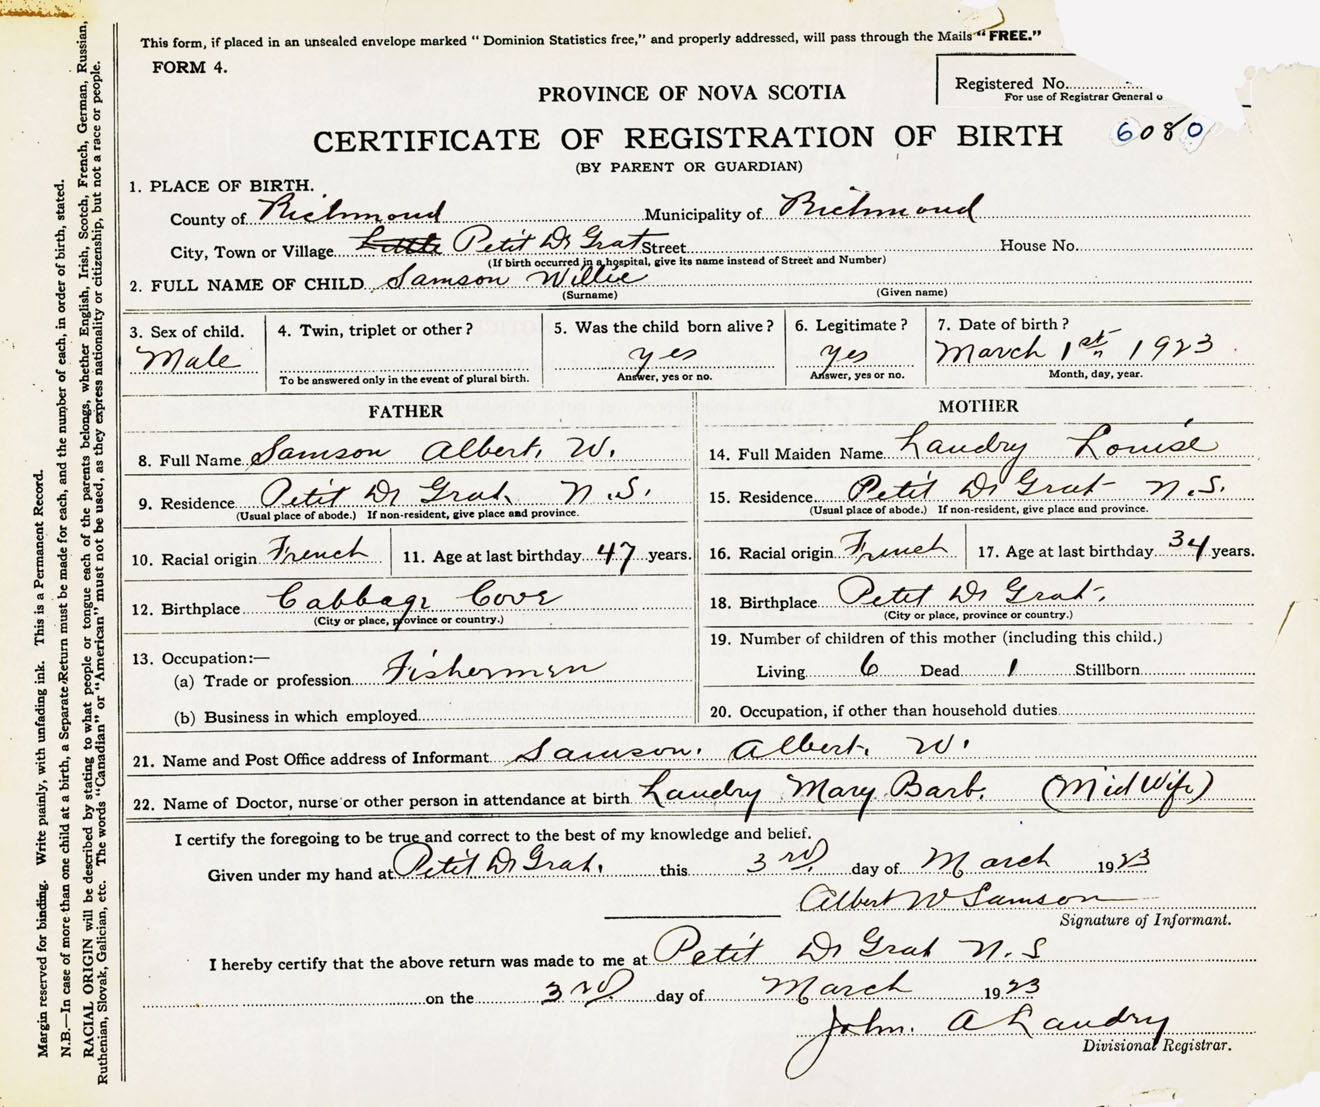 This form, if placed in an unsealed envelope marked " Dominion Statistics free," and properly addressed, will pass through the Mails "FREE."
FORM 4.
Registered No.
For use of Registrar General o
PROVINCE OF NOVA SCOTIA
CERTIFICATE OF REGISTRATION OF BIRTH 6080
(BY PARENT OR GUARDIAN)
1. PLACE OF BIRTH.
County of Richmond Municipality of Richmond
City, Town or Village Little Petit De Grat Street House No.
(If birth occurred in a hospital, give its name instead of Street and Number)
2. FULL NAME OF CHILD Samson Willie
(Surname) (Given name)
3. Sex of child. 4. Twin, triplet or other? 5. Was the child born alive? 6. Legitimate? 7. Date of birth?
Male yes yes March 1st 1923
To be answered only in the event of plural birth. Answer, yes or no. Answer, yes or no. Month, day, year.
FATHER MOTHER
8. Full Name Samson Albert. W. 14. Full Maiden Name Landry Louise
9. Residence Petit De Grat. N.S. 15. Residence Petit De Grat N.S.
(Usual place of abode.) If non-resident, give place and province. (Usual place of abode.) If non-resident, give place and province.
10. Racial origin French 11. Age at last birthday 47 years. 16. Racial origin French 17. Age at last birthday 34 years.
12. Birthplace Cabbage Cove 18. Birthplace Petit De Grat.
(City or place, province or country.) (City or place, province or country.)
13. Occupation:— 19. Number of children of this mother (including this child.)
(a) Trade or profession Fishermen Living 6 Dead 1 Stillborn
(b) Business in which employed 20. Occupation, if other than household duties
21. Name and Post Office address of Informant Samson. Albert. W.
22. Name of Doctor, nurse or other person in attendance at birth Landry Mary Barb. (MidWife)
I certify the foregoing to be true and correct to the best of my knowledge and belief.
Given under my hand at Petit De Grat. this 3rd day of March 1923
Albert W Samson
Signature of Informant.
I hereby certify that the above return was made to me at Petit De Grat N.S
on the 3rd day of March 1923
John. A Landry
Divisional Registrar.
Margin reserved for binding. Write plainly, with unfading ink. This is a Permanent Record.
N.B.—In case of more than one child at a birth, a Separate Return must be made for each, and the number of each, in order of birth, stated.
RACIAL ORIGIN will be described by stating to what people or tongue each of the parents belongs, whether English, Irish, Scotch, French, German, Russian,
Ruthenian, Slovak, Galician, etc. The words "Canadian" or "American" must not be used, as they express nationality or citizenship, but not a race or people.